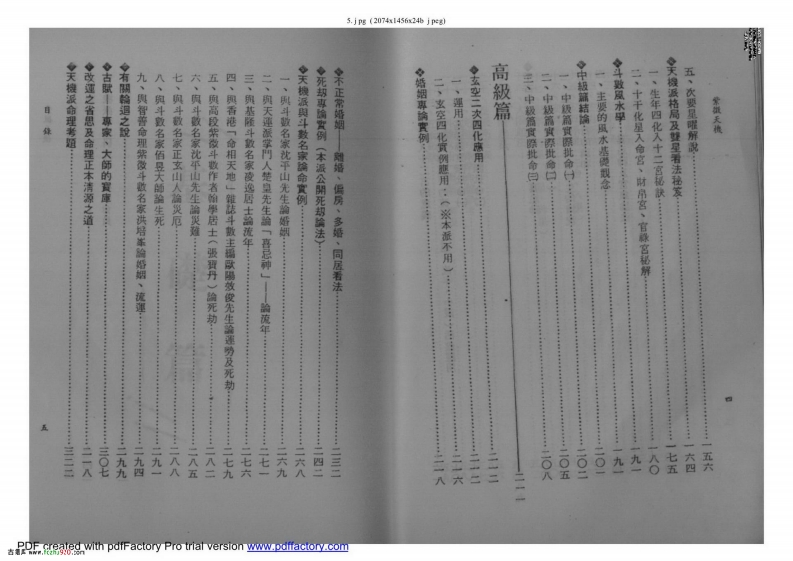 5.jpg (2074x1456x24b jpeg)
紫微天機
四
五、次要星曜解說……一五六
◆天機派格局及雙星看法秘笈……一六四
一、生年四化入十二宮秘訣……一七五
二、十干化星入命宮、財帛宮、官祿宮秘解……一八〇
◆斗數風水學……一九一
一、主要的風水基礎觀念……一九一
◆中級篇結論……二〇一
一、中級篇實際批命㈠……二〇二
二、中級篇實際批命㈡……二〇五
三、中級篇實際批命㈢……二〇八
高級篇……二一一
◆玄空二次四化應用……二一二
一、運用……二一二
二、玄空四化實例應用:(※本派不用)……二一六
◆婚姻專論實例……二一八
◆不正常婚姻——離婚、偏房、多婚、同居看法……二三二
◆死劫專論實例(本派公開死劫論法)……二四二
◆天機派與斗數名家論命實例……二六八
一、與斗數名家沈平山先生論婚姻……二六九
二、與天運派掌門人楚皇先生論「喜忌神」——論流年……二七一
三、與基隆斗數名家凌逸居士論流年……二七六
四、與香港「命相天地」雜誌斗數主編歐陽效俊先生論運勢及死劫……二七九
五、與高段紫微斗數作者翰學居士(張寶丹)論死劫……二八二
六、與斗數名家沈平山先生論災難……二八五
七、與斗數名家正玄山人論災厄……二八八
八、與斗數名家佰昱大師論生死……二九一
九、與智香命理紫微斗數名家洪培峯論婚姻、流運……二九四
◆有關輪迴之說……二九九
◆古賦——專家、大師的寶庫……三〇七
◆改運之省思及命理正本清源之道……三一八
◆天機派命理考題……三二二
目錄
五
PDF created with pdfFactory Pro trial version www.pdffactory.com
www.fczhu920.com